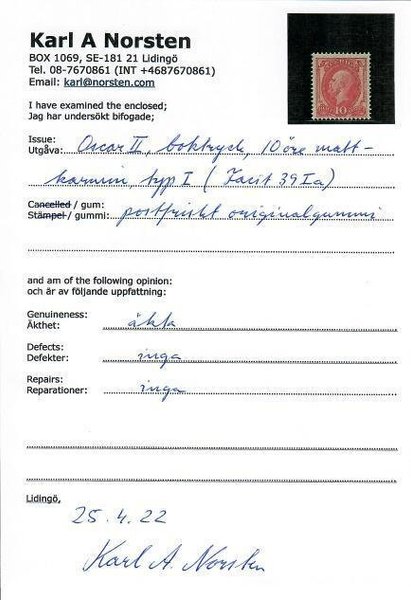 Karl A Norsten
BOX 1069, SE-181 21 Lidingö
Tel. 08-7670861 (INT +4687670861)
Email: karl@norsten.com
I have examined the enclosed;
Jag har undersökt bifogade;
Issue:
Utgåva: Oscar II, boktryck, 10 öre matt-
karmin, typ I (Facit 39 Ia)
Cancelled / gum:
Stämpel / gummi: postfriskt originalgummi
and am of the following opinion:
och är av följande uppfattning:
Genuineness:
Äkthet: äkta
Defects:
Defekter: inga
Repairs:
Reparationer: inga
Lidingö,
25.4.22
Karl A. Norsten
10